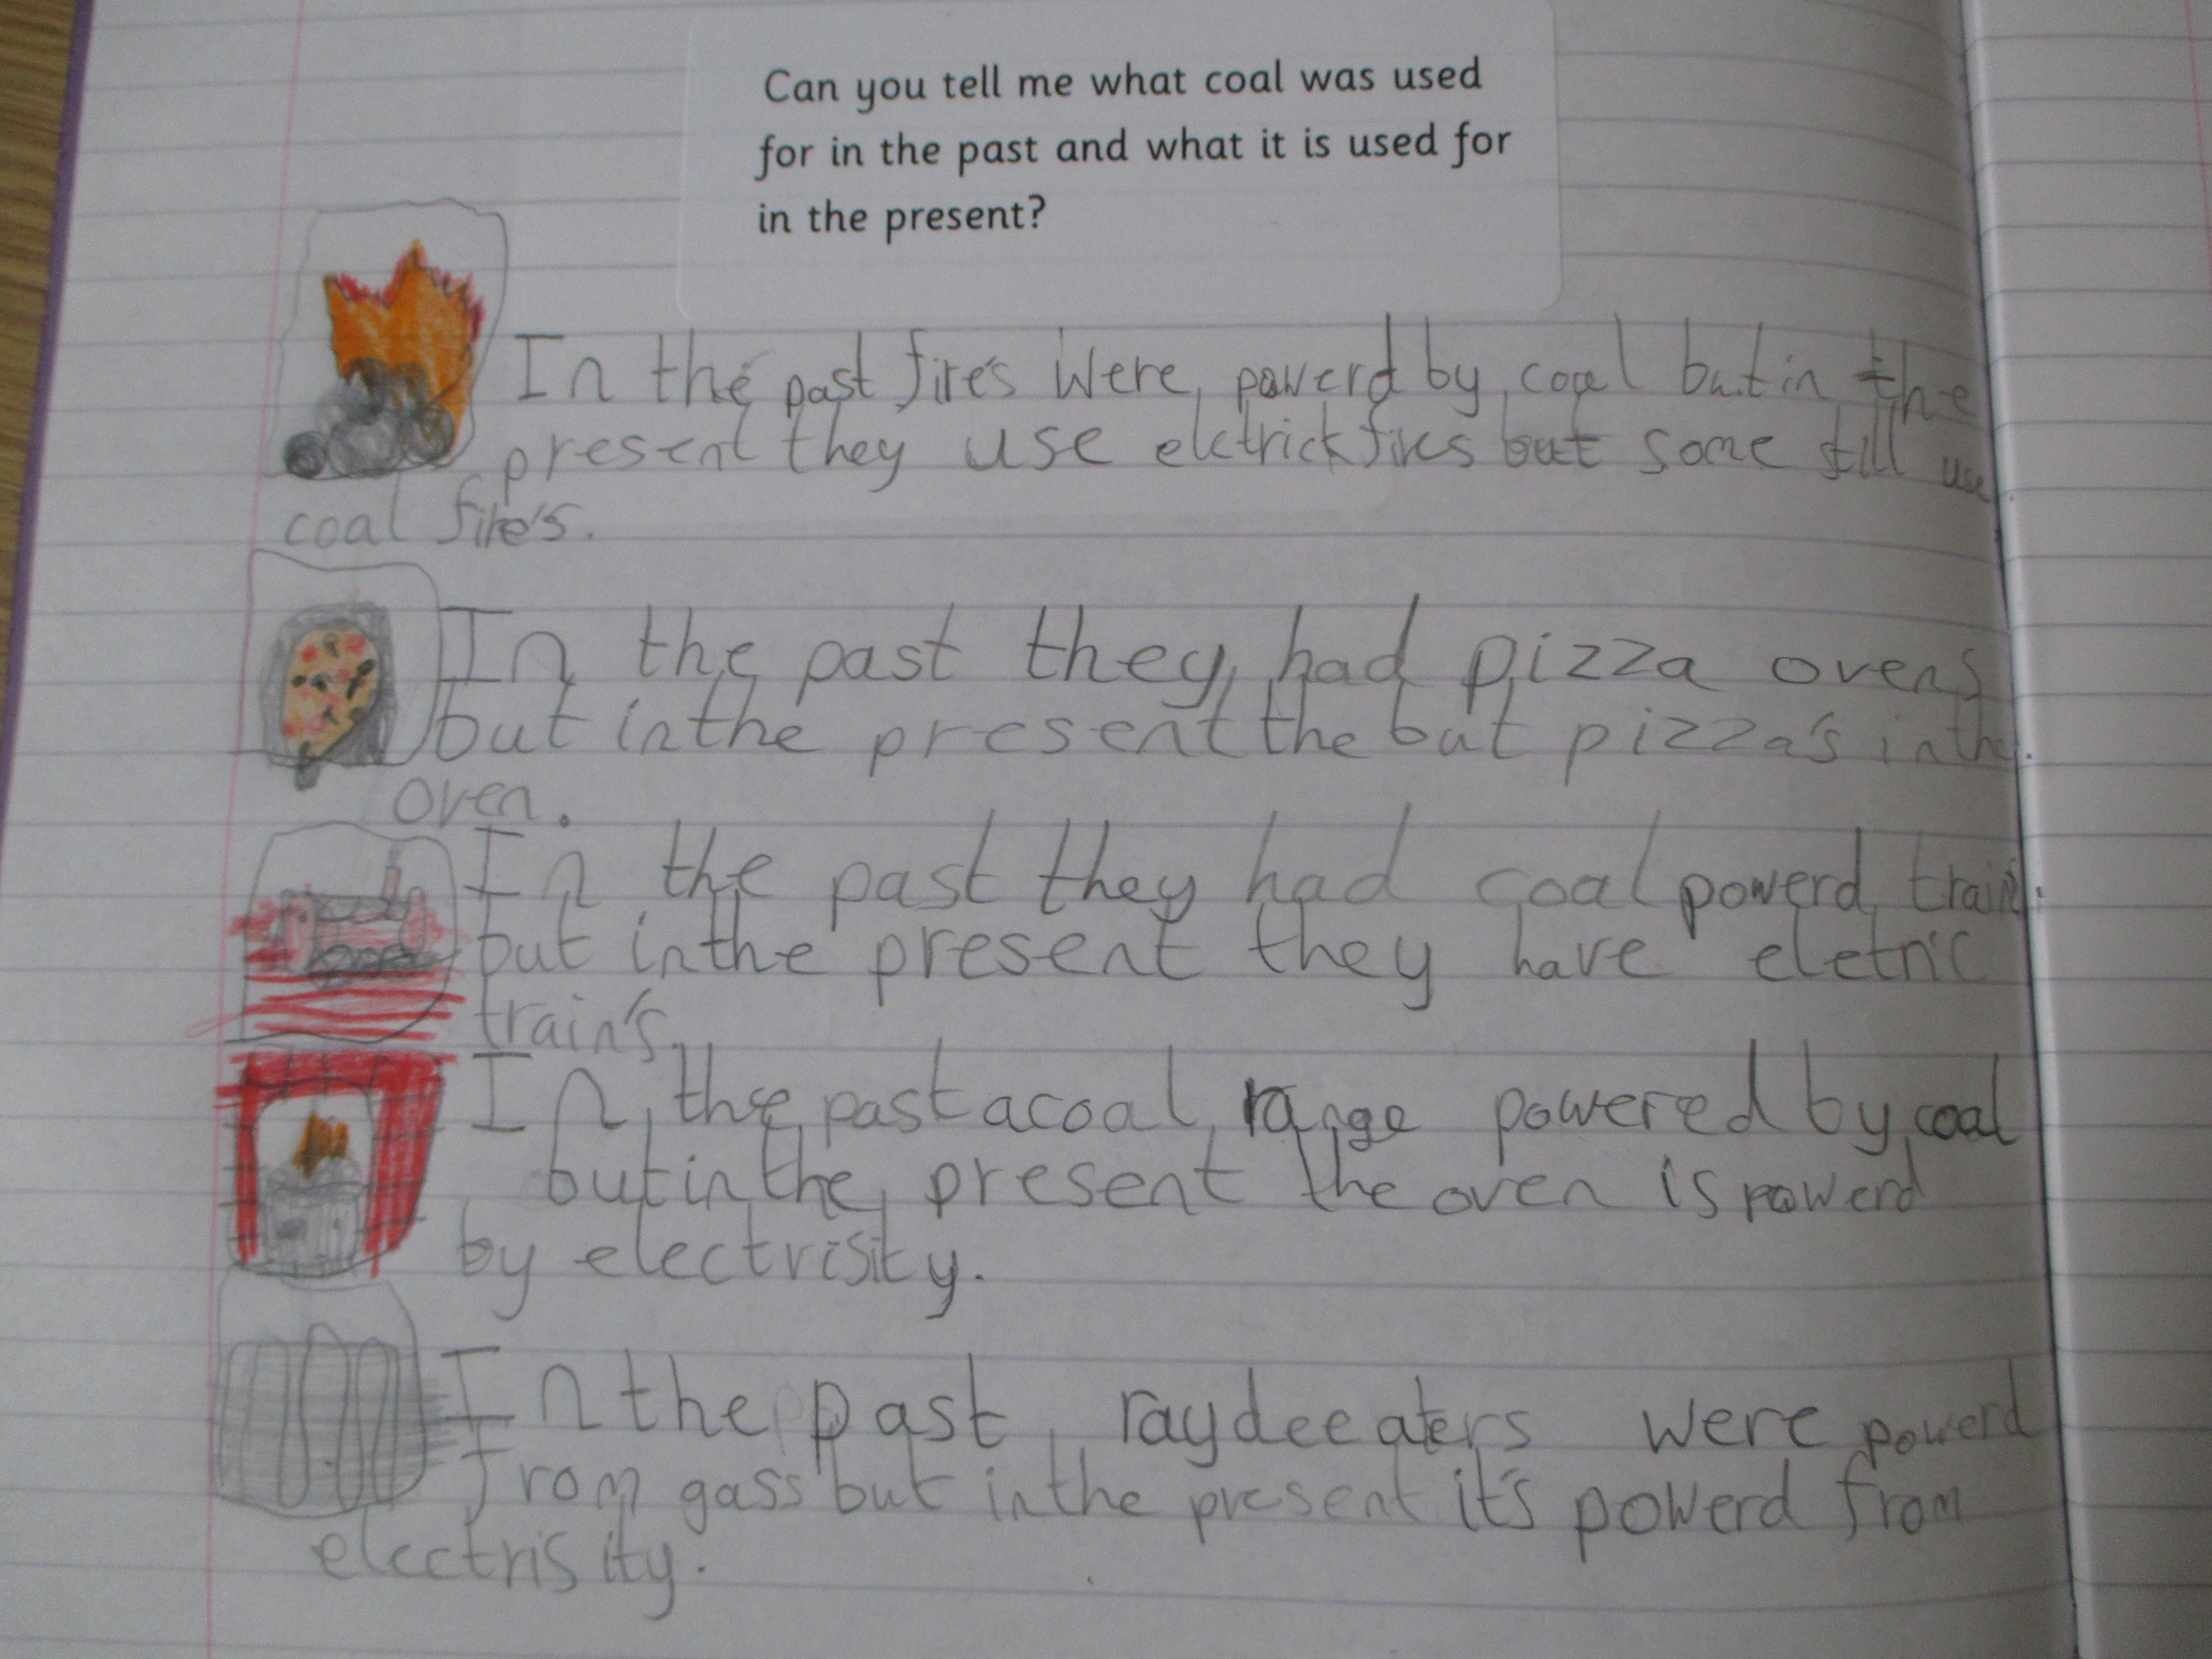 Can you tell me what coal was used
for in the past and what it is used for
in the present?
In the past fire's were powerd by coal but in the
present they use elctrick fires but some still use
coal fire's.
In the past they had pizza ovens
but in the present the but pizza's in the
oven.
In the past they had coal powerd train
but in the present they have eletric
train's.
In the past a coal range powered by coal
but in the present the oven is powerd
by electrisity.
In the past raydeeaters were powerd
from gass but in the present it's powerd from
electrisity.